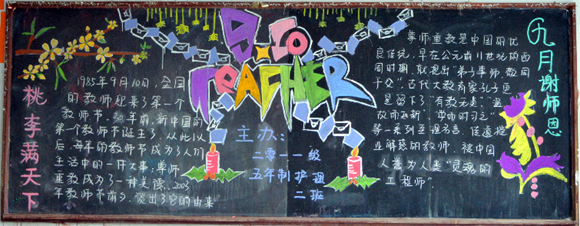 桃李满天下
9.10
TEACHER
1985年9月10日,全国
的教师迎来了第一个
教师节。
第一个教师节诞生了,从此以
后,每年的教师节成为人们
生活中的一件大事;尊师
重教成为了一种
年教师节前夕,
主办:
二零一一级
五年制护理
二班
尊师重教是中国的优
良传统,早在公元前11世纪的西
周时期,就提出“弟子事师,敬同
于父”。古代大教育家孔子更
是留下了“有教无类”、“温
故而知新”、
等一系列至理名言。
的教师,被中国
人誉为人类“灵魂的
工程师”
九月谢师恩